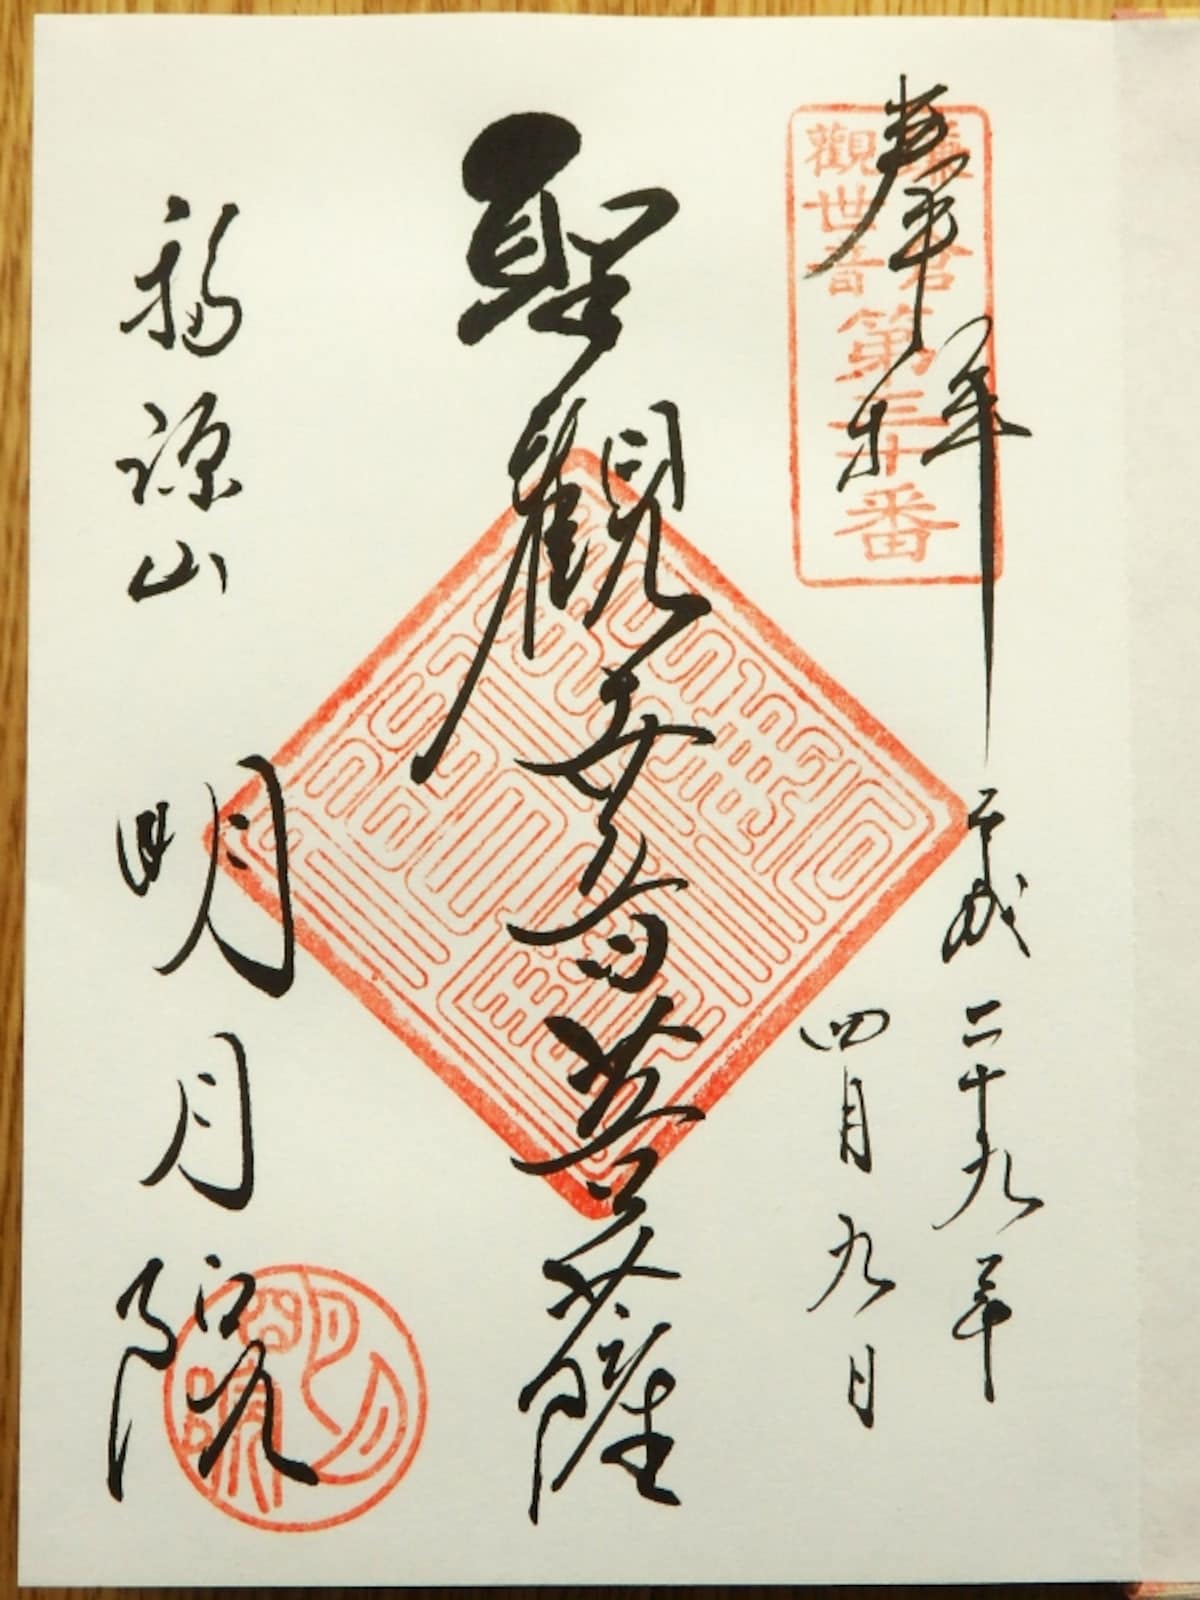 奉拝
鎌倉
觀世音
第三十番
平成二十九年
四月九日
聖觀世音菩薩
福源山
明月院